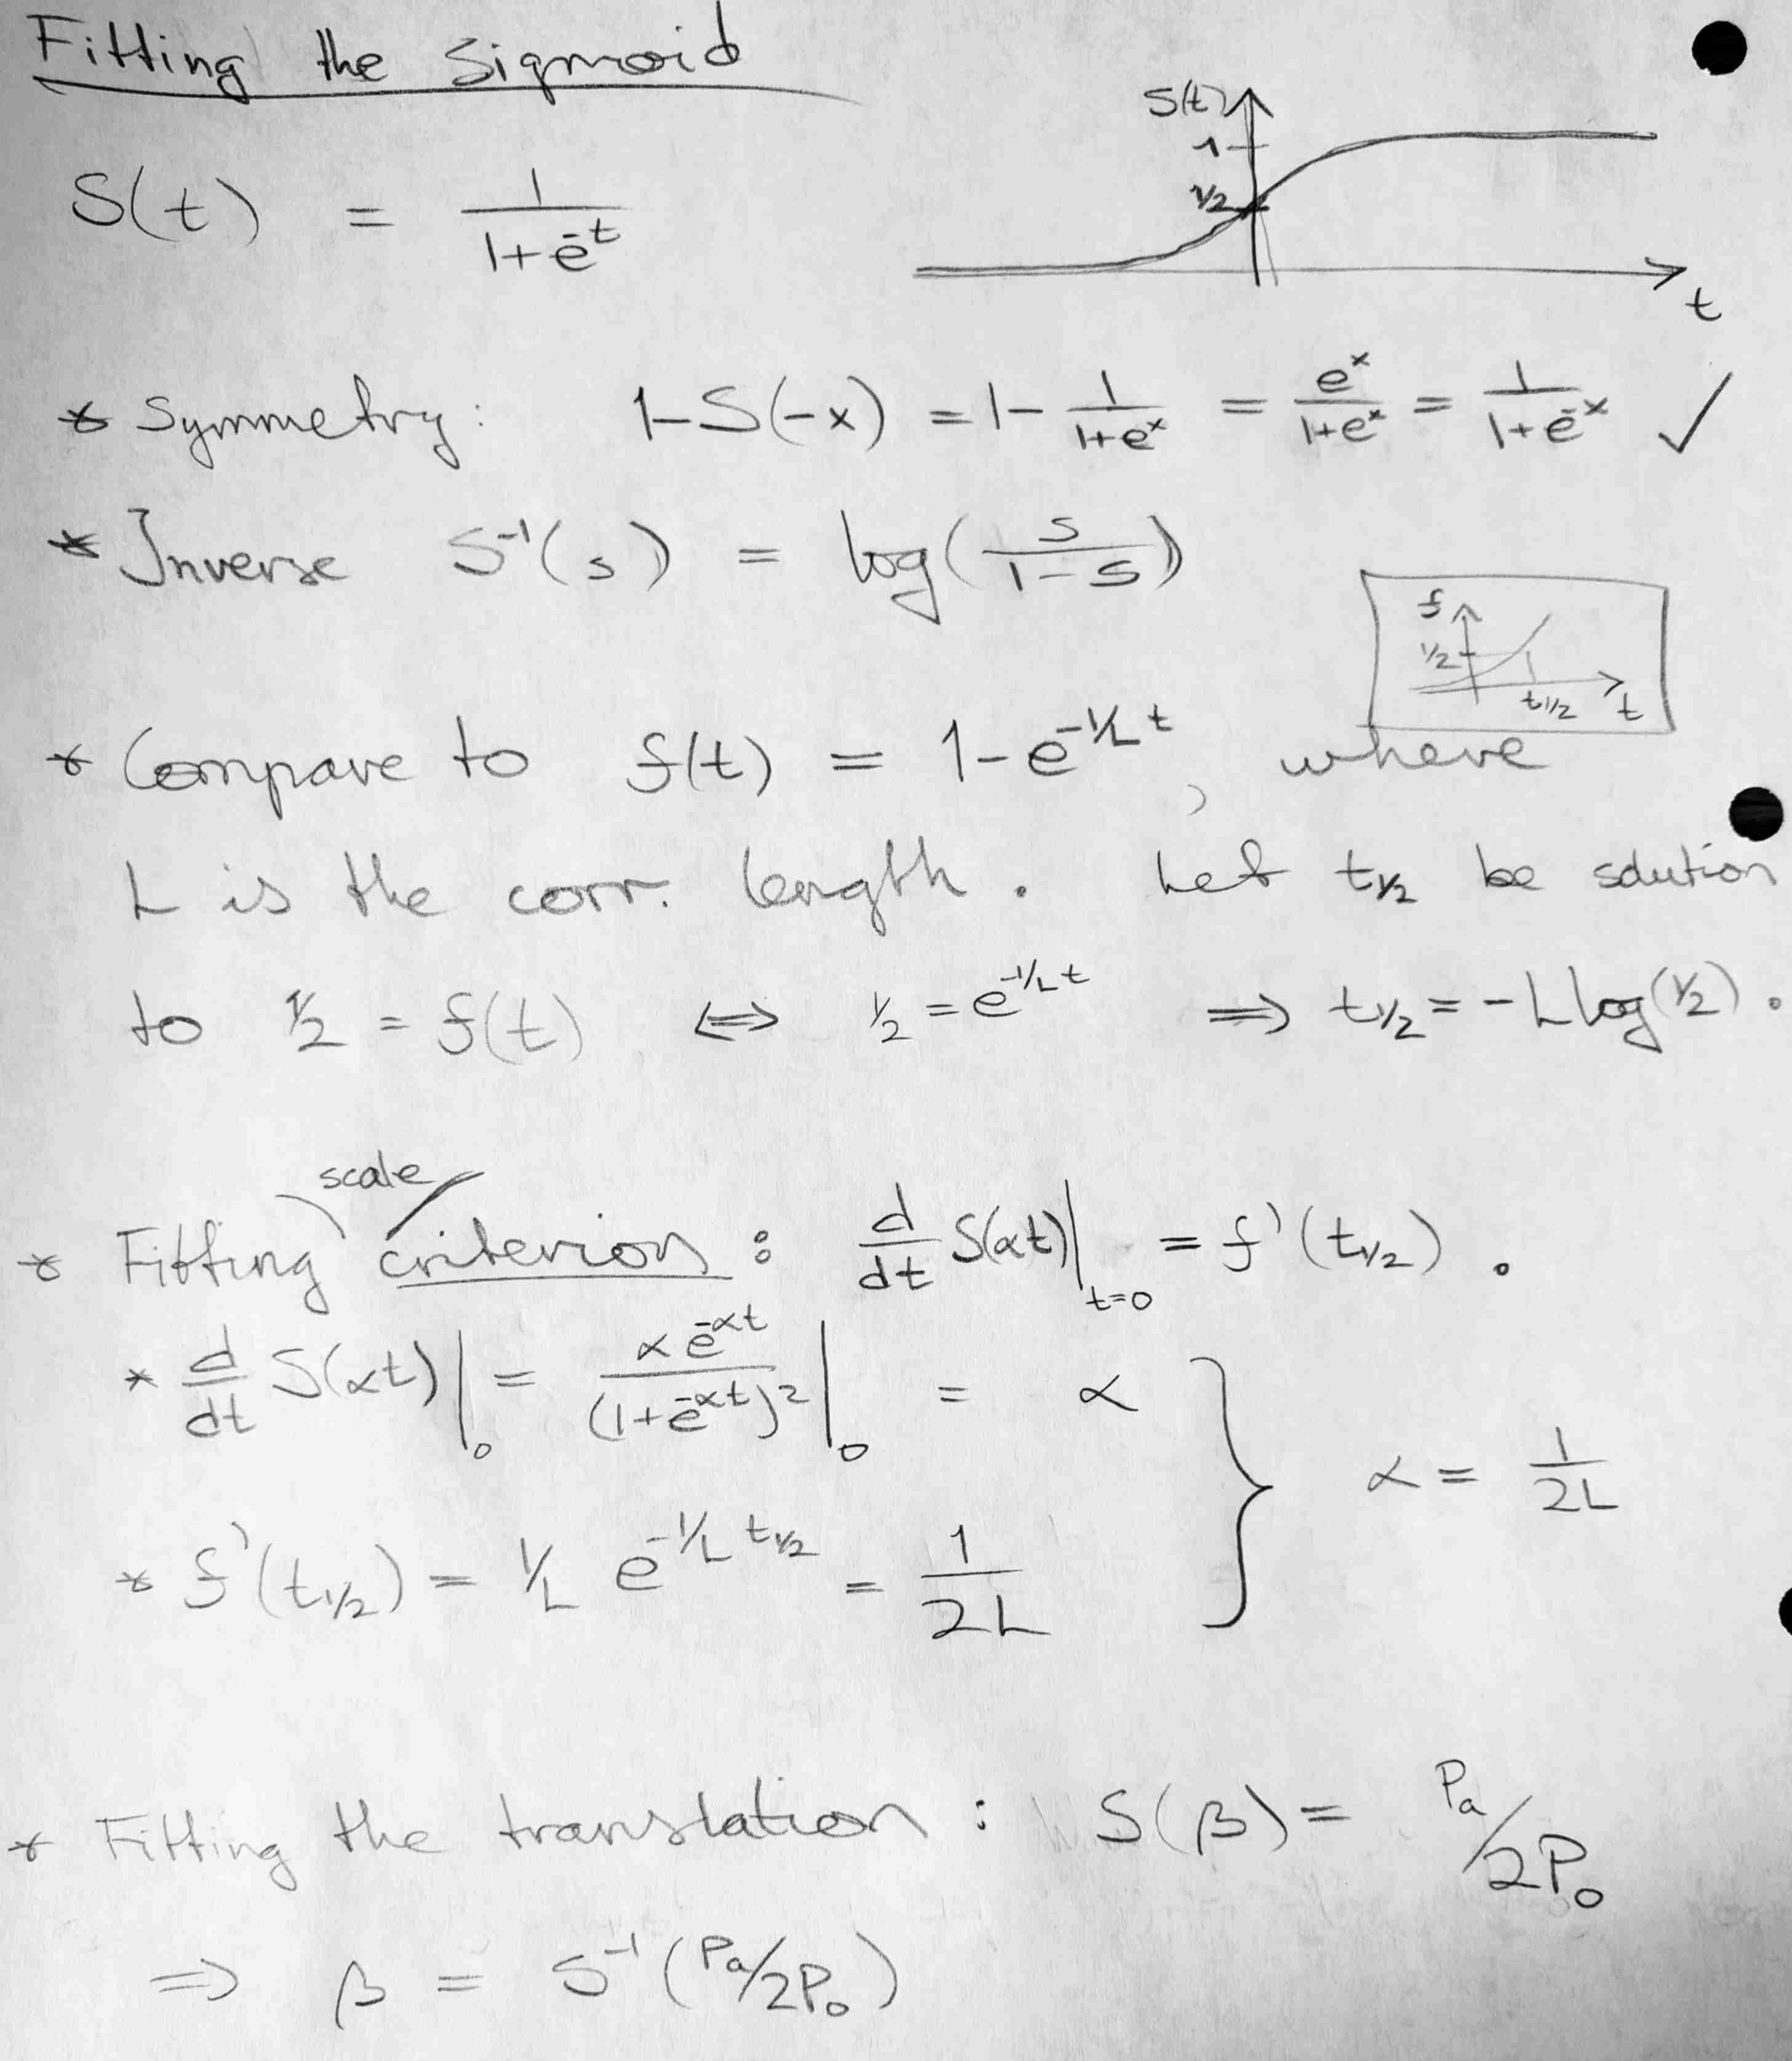 Fitting the Sigmoid
S(t)
1
1/2
t
S(t) = 1/(1+e^-t)
* Symmetry: 1-S(-x) = 1 - 1/(1+e^x) = e^x/(1+e^x) = 1/(1+e^-x) ✓
* Inverse S^-1(s) = log(s/(1-s))
f
1/2
t1/2 t
* Compare to f(t) = 1-e^(-1/L t), where
L is the corr. length. Let t1/2 be solution
to 1/2 = f(t) ⇔ 1/2 = e^(-1/L t) ⇒ t1/2 = -L log(1/2).
scale
* Fitting criterion: d/dt S(αt)|t=0 = f'(t1/2).
* d/dt S(αt)|0 = αe^(-αt)/(1+e^(-αt))^2|0 = α
* f'(t1/2) = 1/L e^(-1/L t1/2) = 1/2L
} α = 1/2L
* Fitting the translation: S(β) = Pa/2P0
⇒ β = S^-1(Pa/2P0)